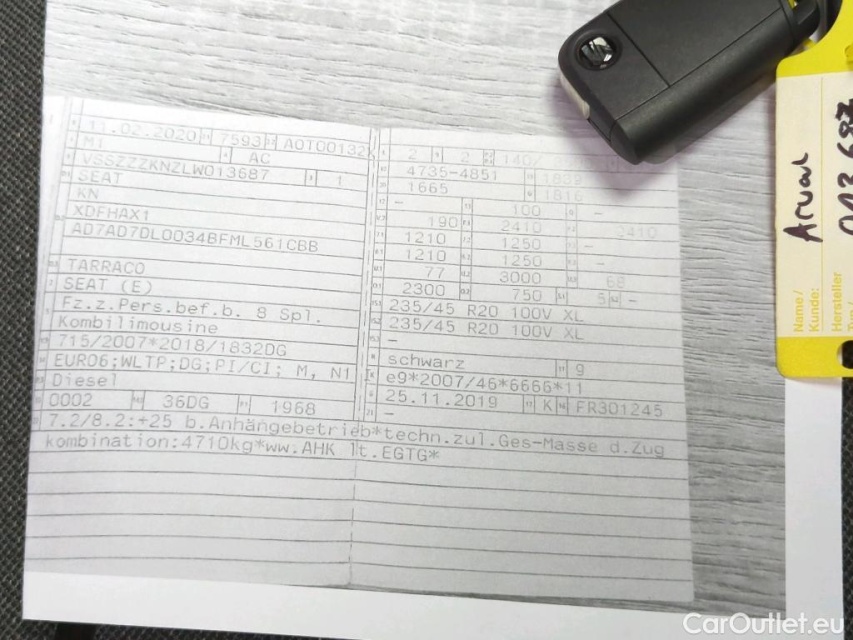 11.02.2020 7593 AOT00132
M1 AC
VSSZZZKNZLW013687 1
SEAT
KN
XDFHAX1
AD7AD7DL0034BFML561CBB
TARRACO
SEAT (E)
Fz.z.Pers.bef.b. 8 Spl.
Kombilimousine
715/2007*2018/1832DG
EURO6;WLTP;DG;PI/CI; M, N1
Diesel
0002 36DG 1968
2 2 140/
4735-4851 1839
1665 1816
- 100 -
190 2410 2410
1210 1250 -
1210 1250 -
77 3000 68
2300 750 5 -
235/45 R20 100V XL
235/45 R20 100V XL
-
schwarz 9
e9*2007/46*6666*11
25.11.2019 K FR301245
-
7.2/8.2:+25 b.Anhängebetrieb*techn.zul.Ges-Masse d.Zug
kombination:4710kg*ww.AHK lt.EGTG*
Name/
Kunde:
Arval
013687
Hersteller
CarOutlet.eu